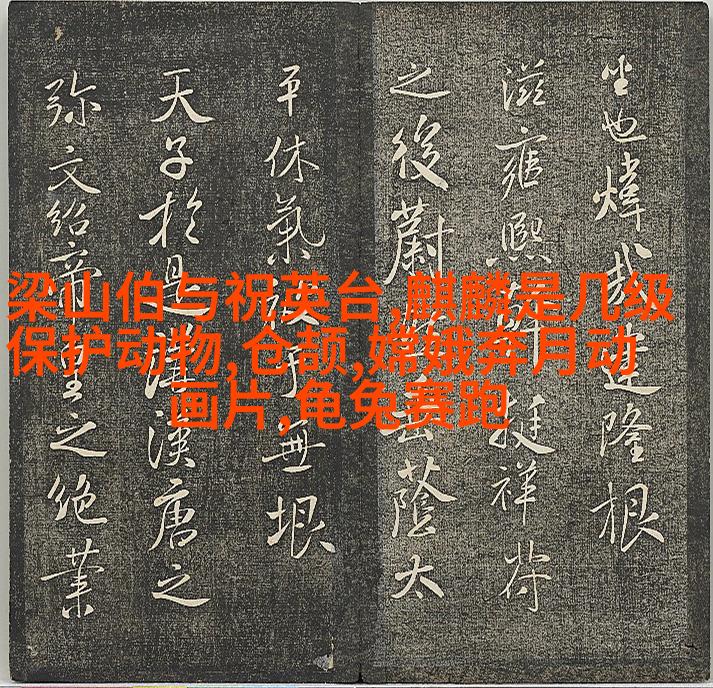 梁山伯与祝英台,麒麟是几级
保护动物,仓颉,嫦娥奔月动
画片,龟兔赛跑
也煒哉建隆根
滋雍熙挺祥符
之後蔚蔭太
平休氣于無垠
天子於是漢唐之
弥文紹帝之絶業